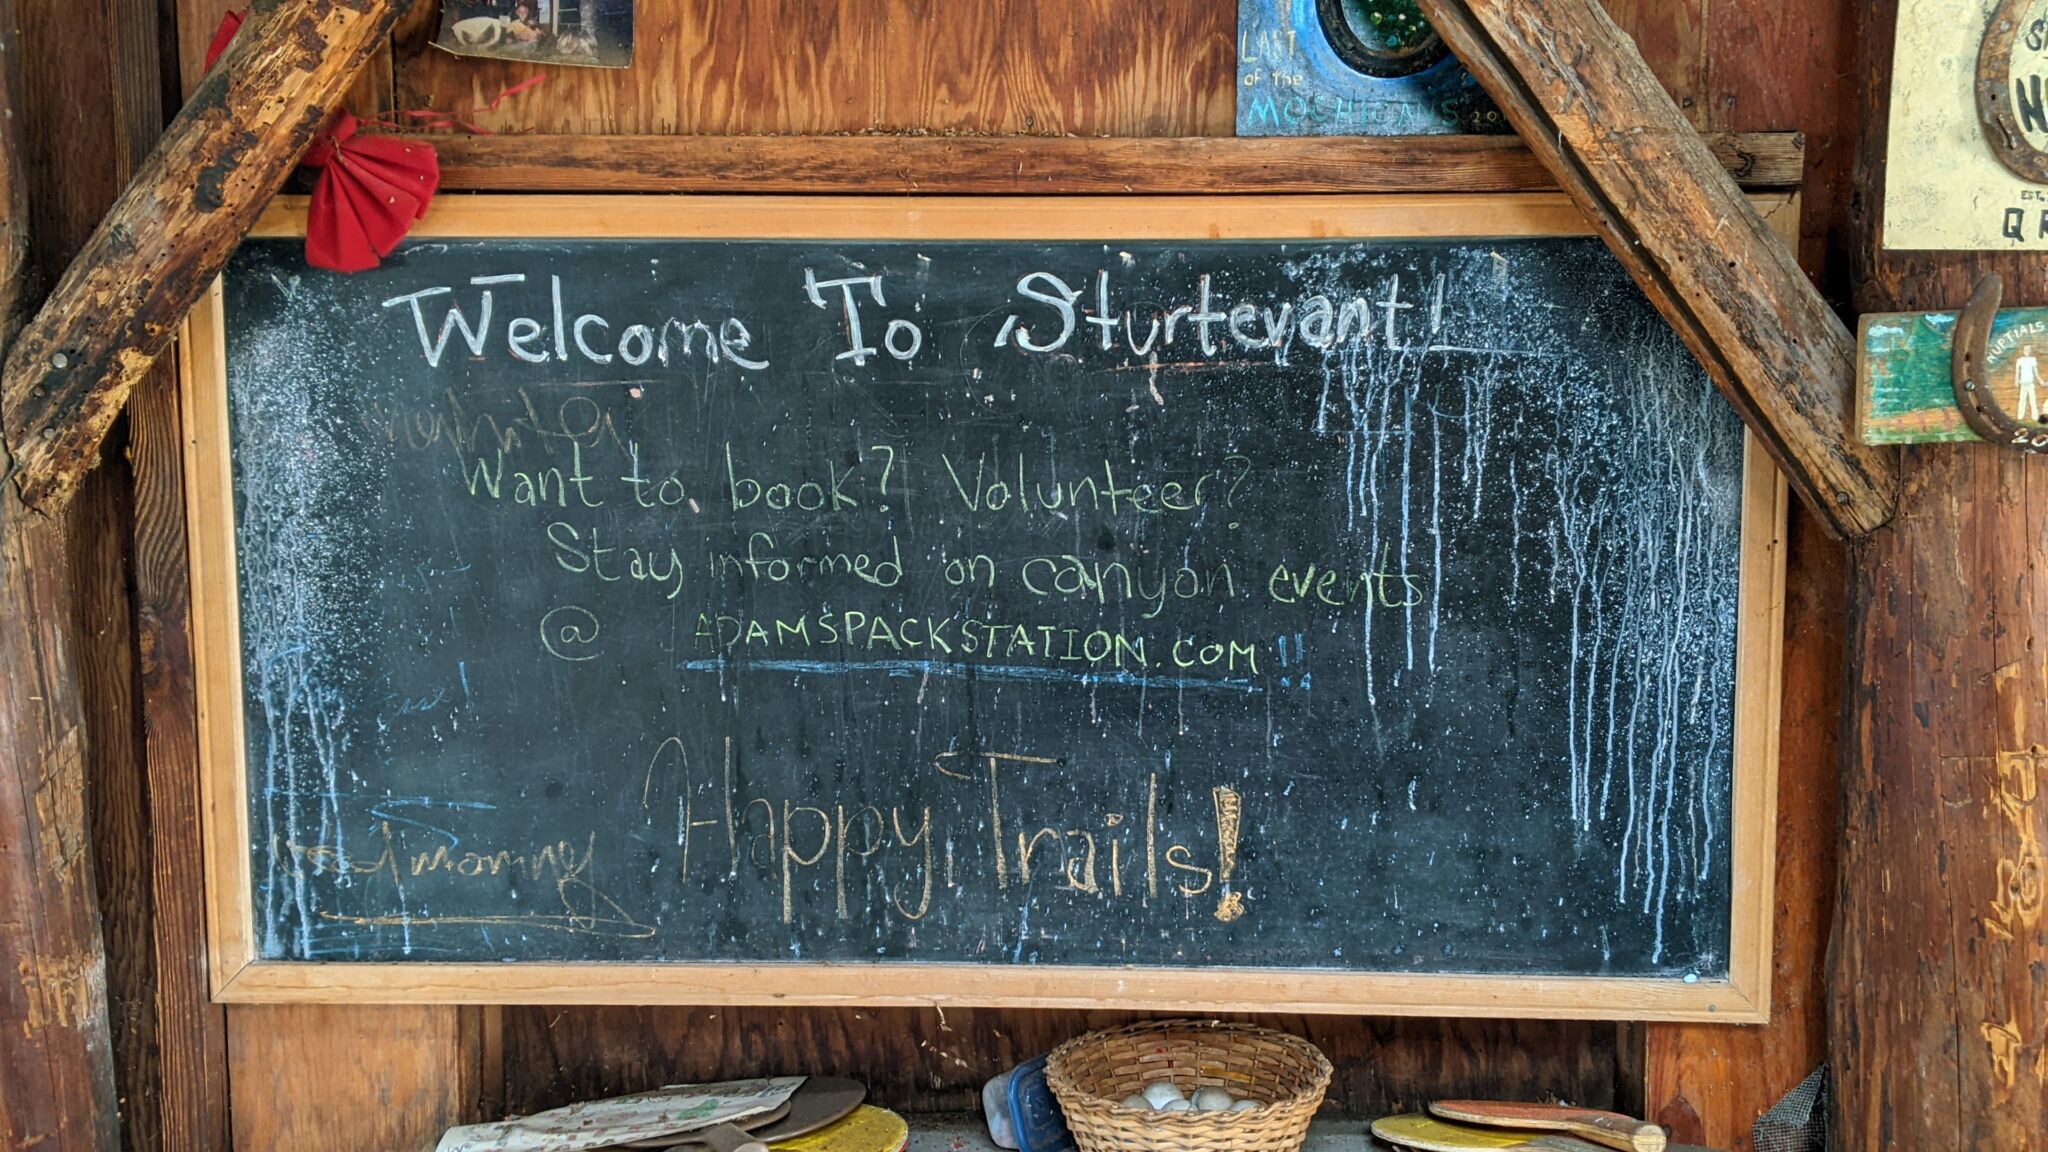 LAST
of the
MOCHICANS
EST.
NUPTIALS
Welcome To Sturtevant!
Want to book? Volunteer?
Stay informed on canyon events
@ ADAMSPACKSTATION.COM!!
Happy Trails!